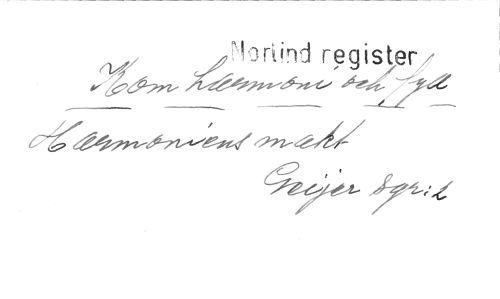 Norlind register
Kom harmoni och fyll
Harmoniens makt
Geijer 8gr:2